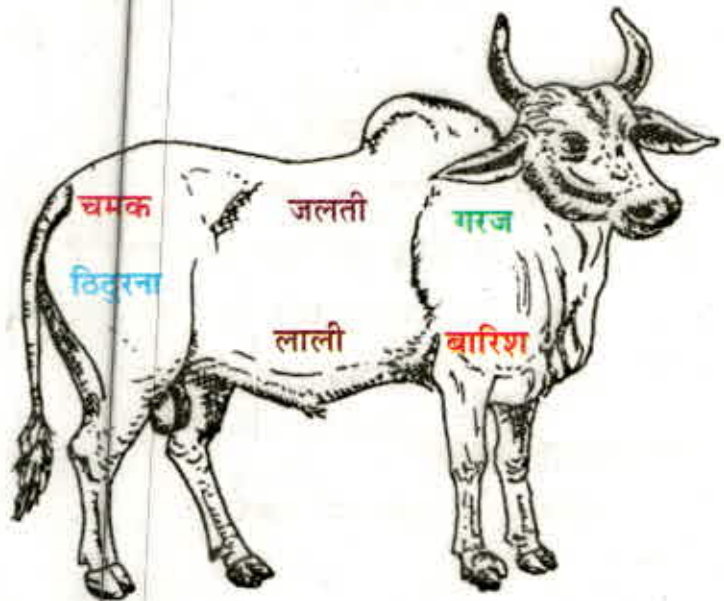 चमक जलती गरज
ठिठुरना
लाली बारिश